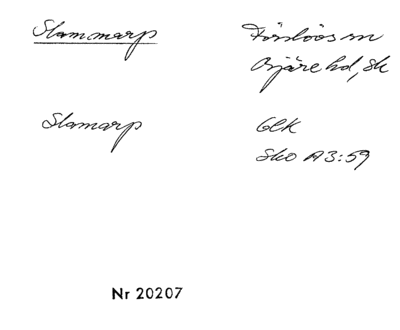 Slammarp
Förslövs sn
Bjäre hd, Sk
Slamarp
GEK
Sko A3:59
Nr 20207